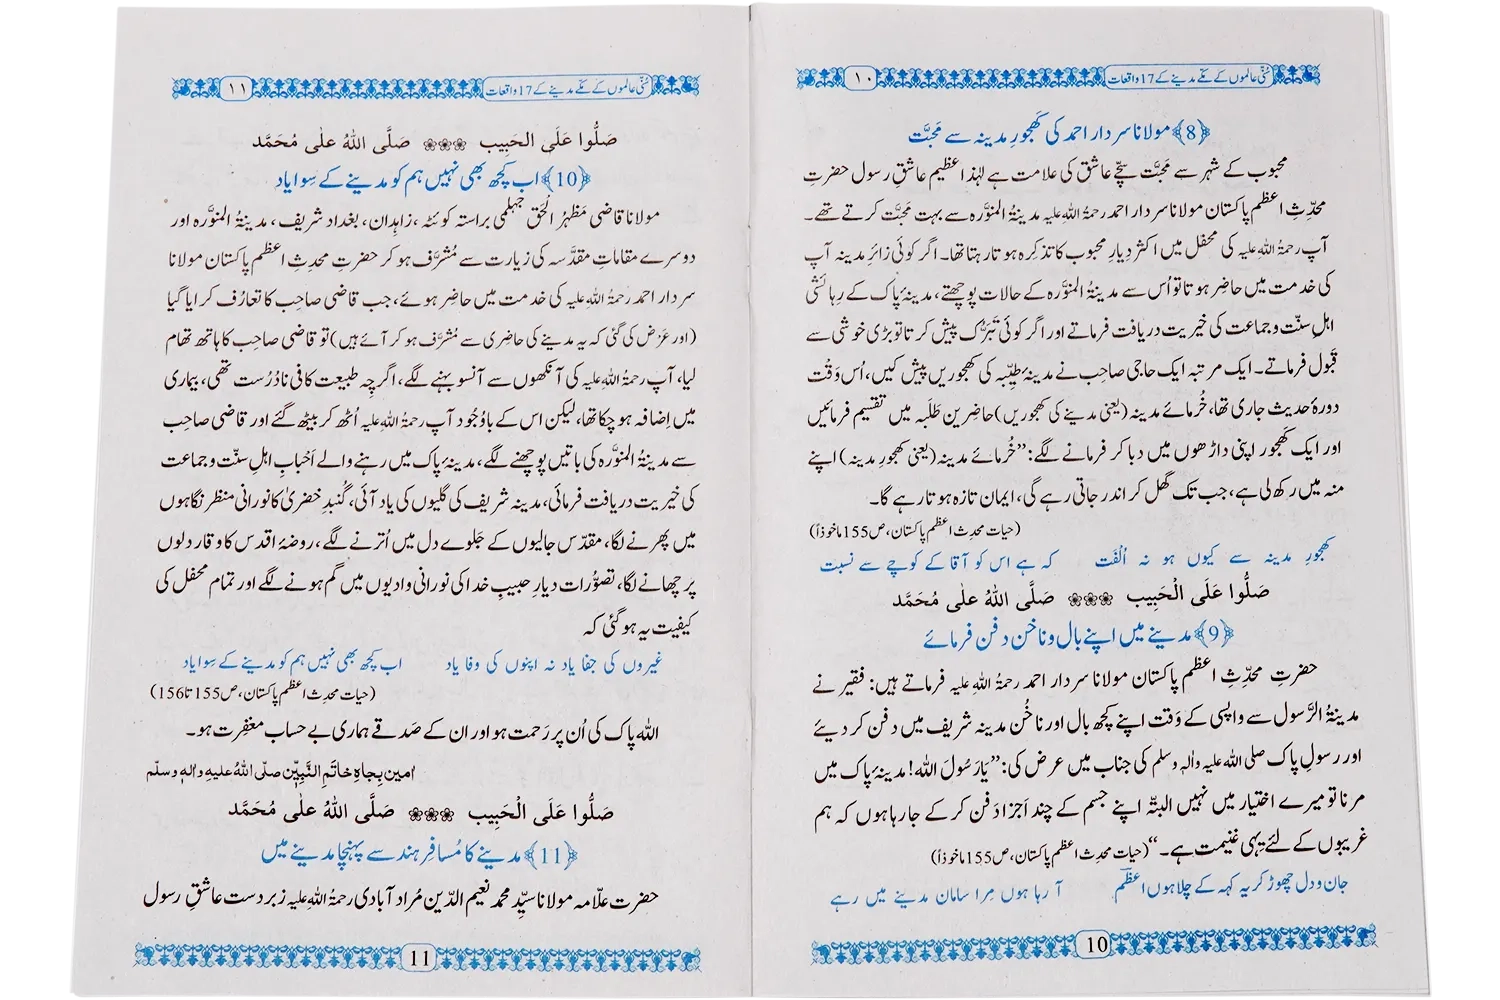 سُنّی عالموں کے مکّے مدینے کے 17 واقعات
١٠
﴿8﴾ مولانا سردار احمد کی کَھجورِ مدینہ سے مَحبَّت
محبوب کے شہر سے مَحبَّت سچّے عاشق کی علامت ہے لہٰذا عظیم عاشقِ رسول حضرتِ
محدِّثِ اعظم پاکستان مولانا سردار احمد رحمۃُ اللہِ علیہ مدینۃُ المنوَّرہ سے بہت مَحبَّت کرتے تھے۔
آپ رحمۃُ اللہِ علیہ کی محفل میں اکثر دِیارِ محبوب کا تذکِرہ ہوتا رہتا تھا۔ اگر کوئی زائرِ مدینہ آپ
کی خدمت میں حاضِر ہوتا تو اُس سے مدینۃُ المنوَّرہ کے حالات پوچھتے، مدینۂ پاک کے رہائشی
اہلِ سنّت و جماعت کی خیریت دریافت فرماتے اور اگر کوئی تَبَرُّک پیش کرتا تو بڑی خوشی سے
قَبول فرماتے۔ ایک مرتبہ ایک حاجی صاحِب نے مدینۂ طیِّبہ کی کھجوریں پیش کیں، اُس وَقْت
دورۂ حدیث جاری تھا، خُرمائے مدینہ (یعنی مدینے کی کھجوریں) حاضِرین طَلَبہ میں تقسیم فرمائیں
اور ایک کَھجور اپنی داڑھوں میں دبا کر فرمانے لگے: ”خُرمائے مدینہ (یعنی کھجورِ مدینہ) اپنے
منہ میں رکھ لی ہے، جب تک گُھل کر اندر جاتی رہے گی، ایمان تازہ ہوتا رہے گا۔
(حیات محدث اعظم پاکستان، ص155 ماخوذاً)
کھجورِ مدینہ سے کیوں ہو نہ اُلْفَت کہ ہے اس کو آقا کے کوچے سے نسبت
صَلُّوا عَلَى الْحَبِیب صَلَّى اللهُ علٰى مُحَمَّد
﴿9﴾ مدینے میں اپنے بال و ناخن دفن فرمائے
حضرتِ محدِّثِ اعظم پاکستان مولانا سردار احمد رحمۃُ اللہِ علیہ فرماتے ہیں: فقیر نے
مدینۃُ الرَّسول سے واپَسی کے وَقت اپنے کچھ بال اور ناخُن مدینہ شریف میں دفن کر دیئے
اور رسولِ پاک صلی اللہ علیہ واٰلہٖ وسلم کی جناب میں عرض کی: ”یَا رَسُولَ اللہ! مدینۂ پاک میں
مرنا تو میرے اختیار میں نہیں البتّہ اپنے جسم کے چند اَجزا دَفن کر کے جا رہا ہوں کہ ہم
غریبوں کے لئے یِہی غنیمت ہے۔“ (حیات محدث اعظم پاکستان، ص155 ماخوذاً)
جان و دل چھوڑ کر یہ کہہ کے چلا ہوں اعظؔم آ رہا ہوں مِرا سامان مدینے میں رہے
10
سُنّی عالموں کے مکّے مدینے کے 17 واقعات
١١
صَلُّوا عَلَى الحَبِیب صَلَّى اللهُ علٰى مُحَمَّد
﴿10﴾ اب کچھ بھی نہیں ہم کو مدینے کے سِوا یاد
مولانا قاضی مَظہرُ الحَق جہلمی براستہ کوئٹہ، زاہِدان، بغداد شریف، مدینۃُ المنوَّرہ اور
دوسرے مقاماتِ مقدَّسہ کی زیارت سے مُشرَّف ہو کر حضرتِ محدِثِ اعظم پاکستان مولانا
سردار احمد رحمۃُ اللہِ علیہ کی خدمت میں حاضِر ہوئے، جب قاضی صاحِب کا تعارُف کرایا گیا
(اور عَرْض کی گئی کہ یہ مدینے کی حاضِری سے مُشرَّف ہو کر آئے ہیں) تو قاضی صاحِب کا ہاتھ تھام
لیا، آپ رحمۃُ اللہِ علیہ کی آنکھوں سے آنسو بہنے لگے، اگرچِہ طبیعت کافی نادُرُست تھی، بیماری
میں اِضافہ ہو چکا تھا، لیکن اس کے باوُجُود آپ رحمۃُ اللہِ علیہ اُٹھ کر بیٹھ گئے اور قاضی صاحِب
سے مدینۃُ المنوَّرہ کی باتیں پوچھنے لگے، مدینۂ پاک میں رہنے والے اَحْبابِ اہلِ سنّت و جماعت
کی خیریت دریافت فرمائی، مدینہ شریف کی گلیوں کی یاد آئی، گُنبدِ خضریٰ کا نورانی منظر نگاہوں
میں پھرنے لگا، مقدّس جالیوں کے جَلوے دل میں اُترنے لگے، روضۂ اقدس کا وقار دلوں
پر چھانے لگا، تصوُّرات دیارِ حبیبِ خدا کی نورانی وادیوں میں گم ہونے لگے اور تمام محفل کی
کیفیت یہ ہو گئی کہ
غیروں کی جفا یاد نہ اپنوں کی وفا یاد اب کچھ بھی نہیں ہم کو مدینے کے سِوا یاد
(حیات محدث اعظم پاکستان، ص155 تا 156)
اللہ پاک کی اُن پر رَحمت ہو اور ان کے صَدقے ہماری بے حساب مغفِرت ہو۔
اٰمین بِجاہِ خاتَمِ النَّبِیّٖن صلی اللہُ علیہِ واٰلہٖ وسلَّم
صَلُّوا عَلَى الْحَبِیب صَلَّى اللهُ علٰى مُحَمَّد
﴿11﴾ مدینے کا مُسافِر ہند سے پہنچا مدینے میں
حضرت علّامہ مولانا سیِّد محمد نعیم الدّین مُراد آبادی رحمۃُ اللہِ علیہ زبردست عاشقِ رسول
11